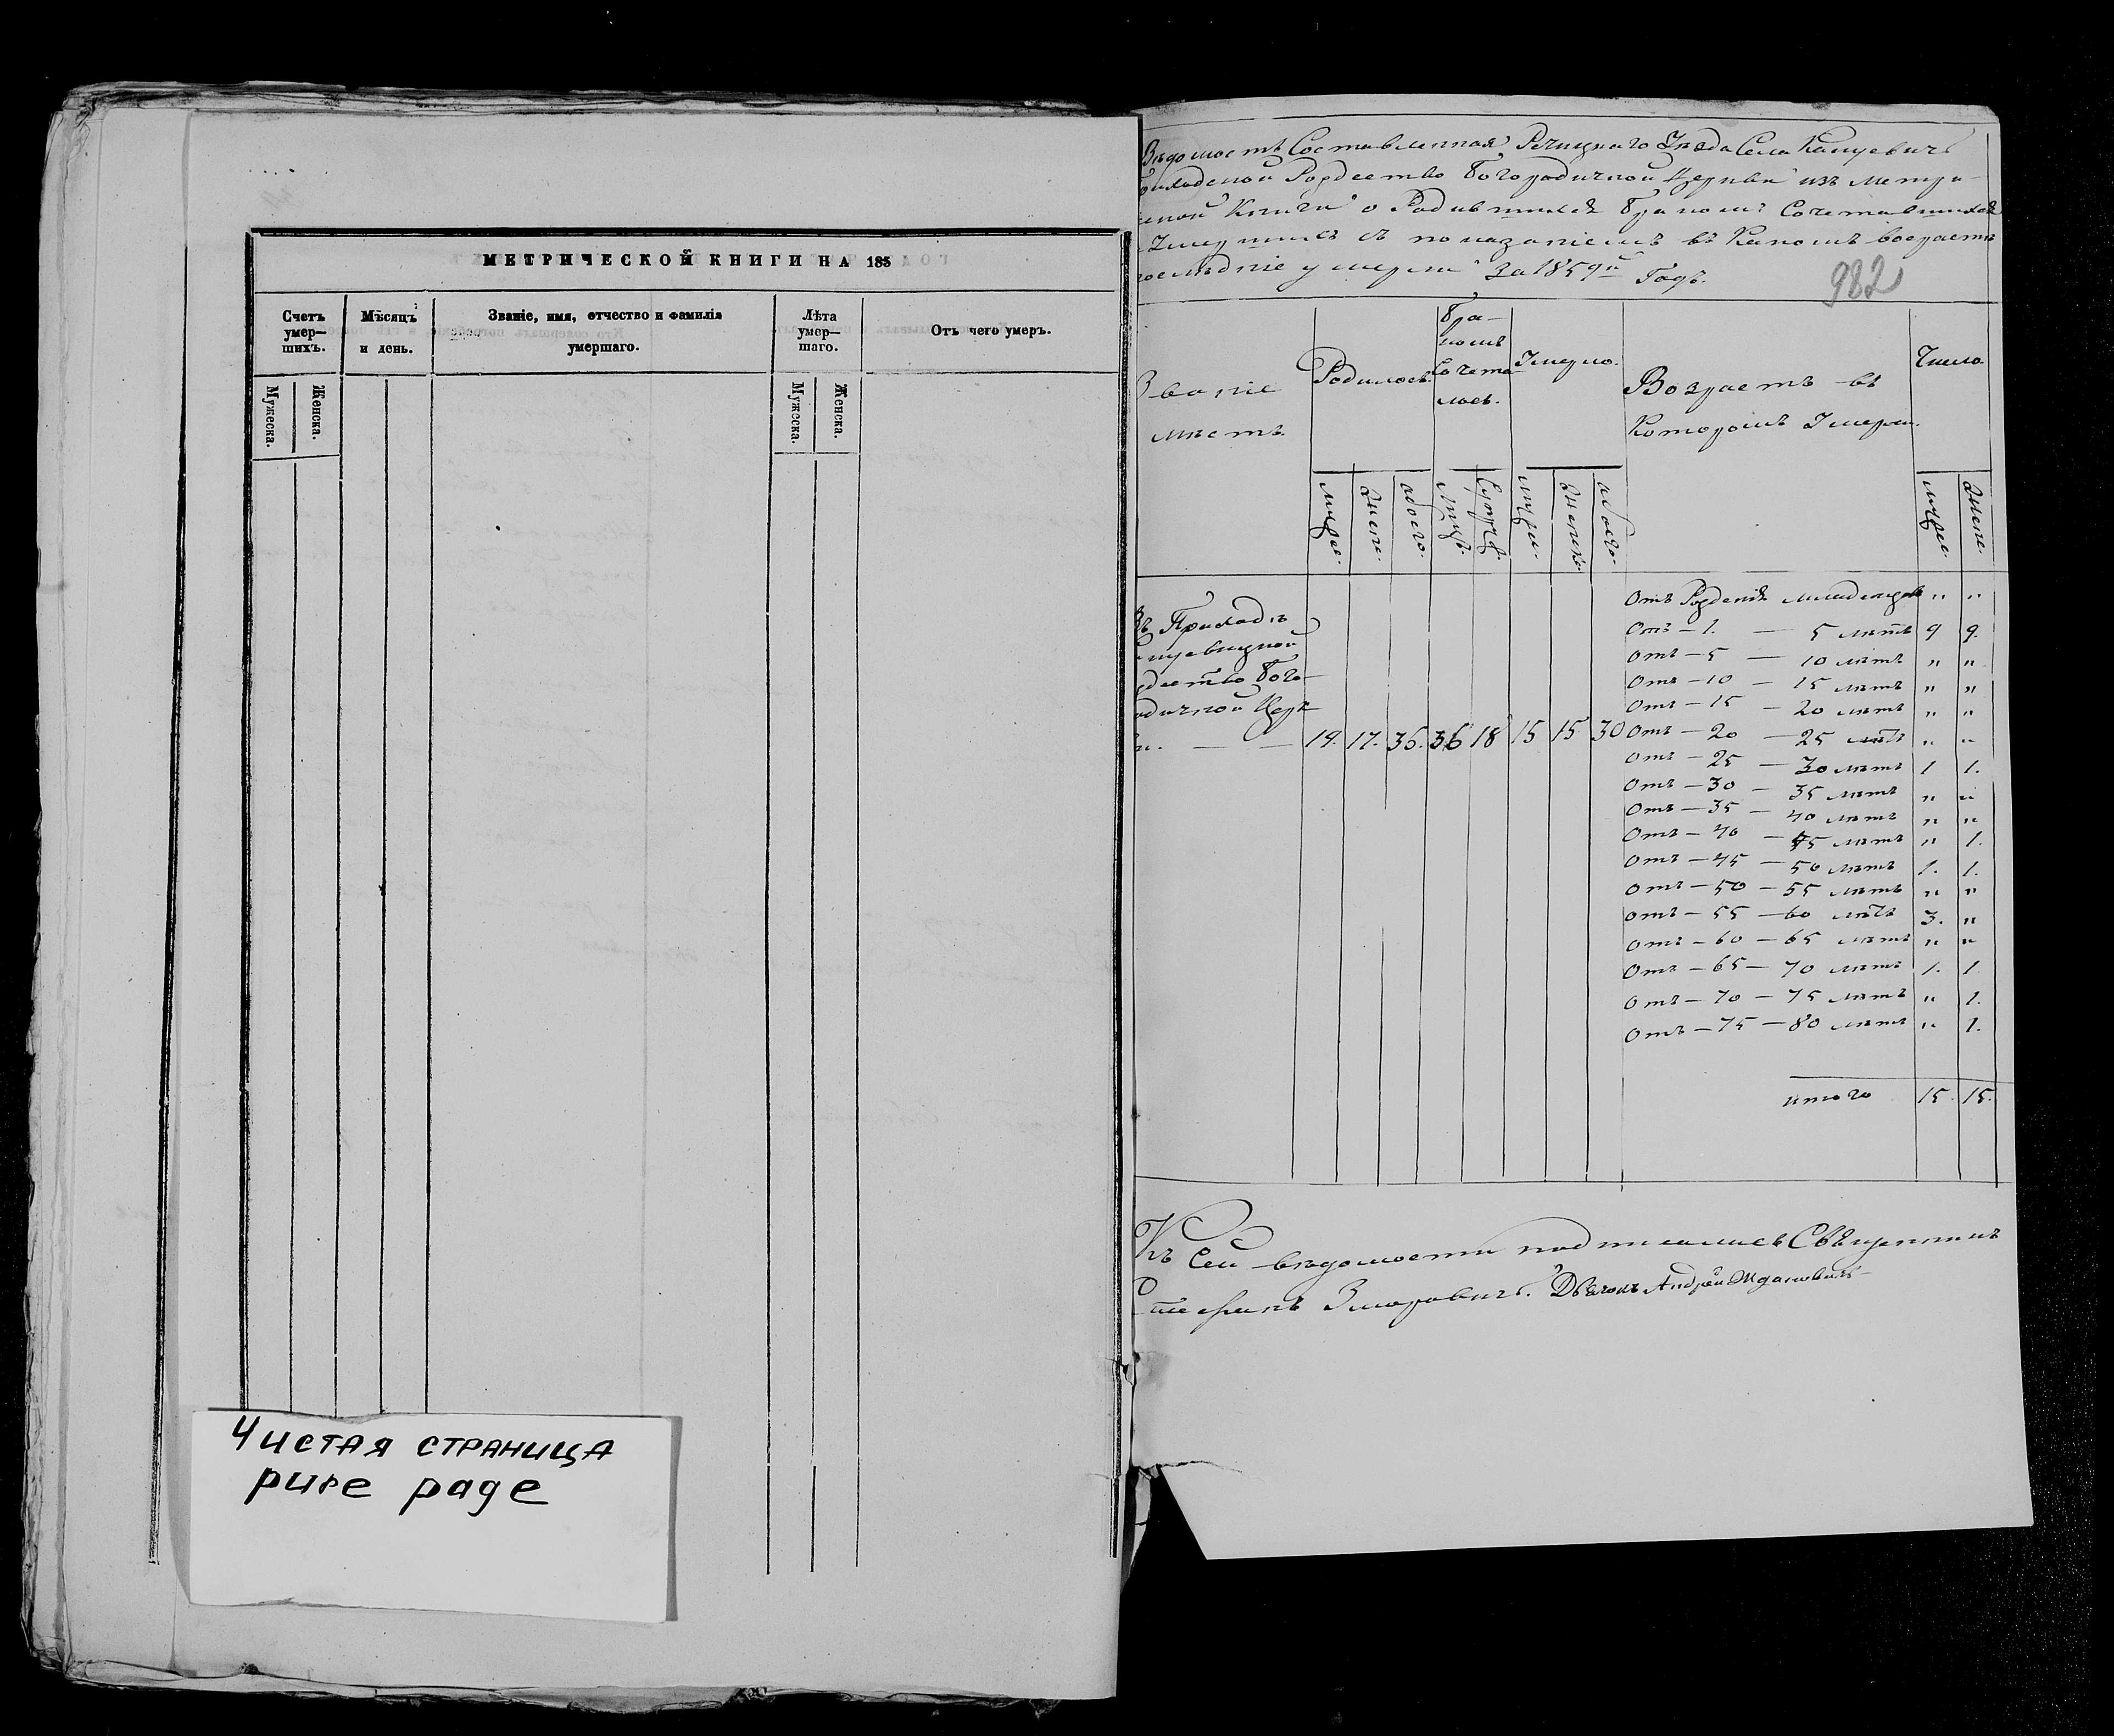 МЕТРИЧЕСКОЙ КНИГИ НА 185
Счетъ умер—шихъ.
Мѣсяцъ и день.
Званіе, имя, отчество и фамилія умершаго.
Лѣта умер—шаго.
Отъ чего умеръ.
Мужеска.
Женска.
Мужеска.
Женска.
Чистая страница
pure page
Вѣдомость Составленная Речицкаго Уѣзда Села Капцевичъ
Рождество Богородичной Церкви изъ метри-
Книги о Родившихся Бракомъ Сочетавшихся
съ показаніемъ въ Какомъ возрастѣ
умерли За 1859й Годъ.
982
Званіе мѣстъ.
Родилось.
Бра—комъ Сочета—лось.
Умерло.
Возрастъ въ Которомъ Умерли.
Число
мужес.
женс.
обоего.
мужи.
женскъ.
обоего.
мужес.
женс.
Въ Приходѣ
Бого—
одичной Церк
и. — — 19. 17. 36. 36 18 15 15 30
Отъ Рожденія младенцовъ " "
Отъ — 1. — 5 лѣтъ 9 9.
Отъ — 5 — 10 лѣтъ " "
Отъ — 10 — 15 лѣтъ " "
Отъ — 15 — 20 лѣтъ " "
Отъ — 20 — 25 лѣтъ " "
Отъ — 25 — 30 лѣтъ 1 1.
Отъ — 30 — 35 лѣтъ " "
Отъ — 35 — 40 лѣтъ " "
Отъ — 40 — 45 лѣтъ " 1.
Отъ — 45 — 50 лѣтъ 1. 1.
Отъ — 50 — 55 лѣтъ " "
Отъ — 55 — 60 лѣтъ 3. "
Отъ — 60 — 65 лѣтъ " "
Отъ — 65 — 70 лѣтъ 1. 1
Отъ — 70 — 75 лѣтъ " 1.
Отъ — 75 — 80 лѣтъ " 1.
итого 15. 15.
Къ Сей вѣдомости подписались Священникъ
Стефанъ Дьячокъ Андрей Ждановичъ